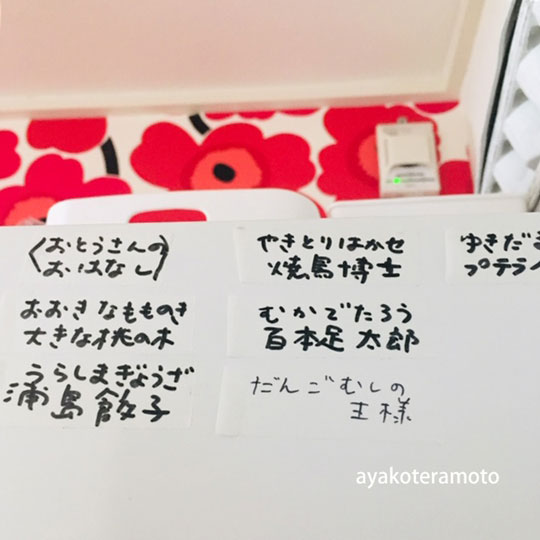 〈おとうさんの
おはなし〉
やきとりはかせ
焼鳥博士
ゆきだま
プテラ
おおきなもものき
大きな桃の木
むかでたろう
百本足太郎
うらしまぎょうざ
浦島餃子
だんごむしの
王様
ayakoteramoto